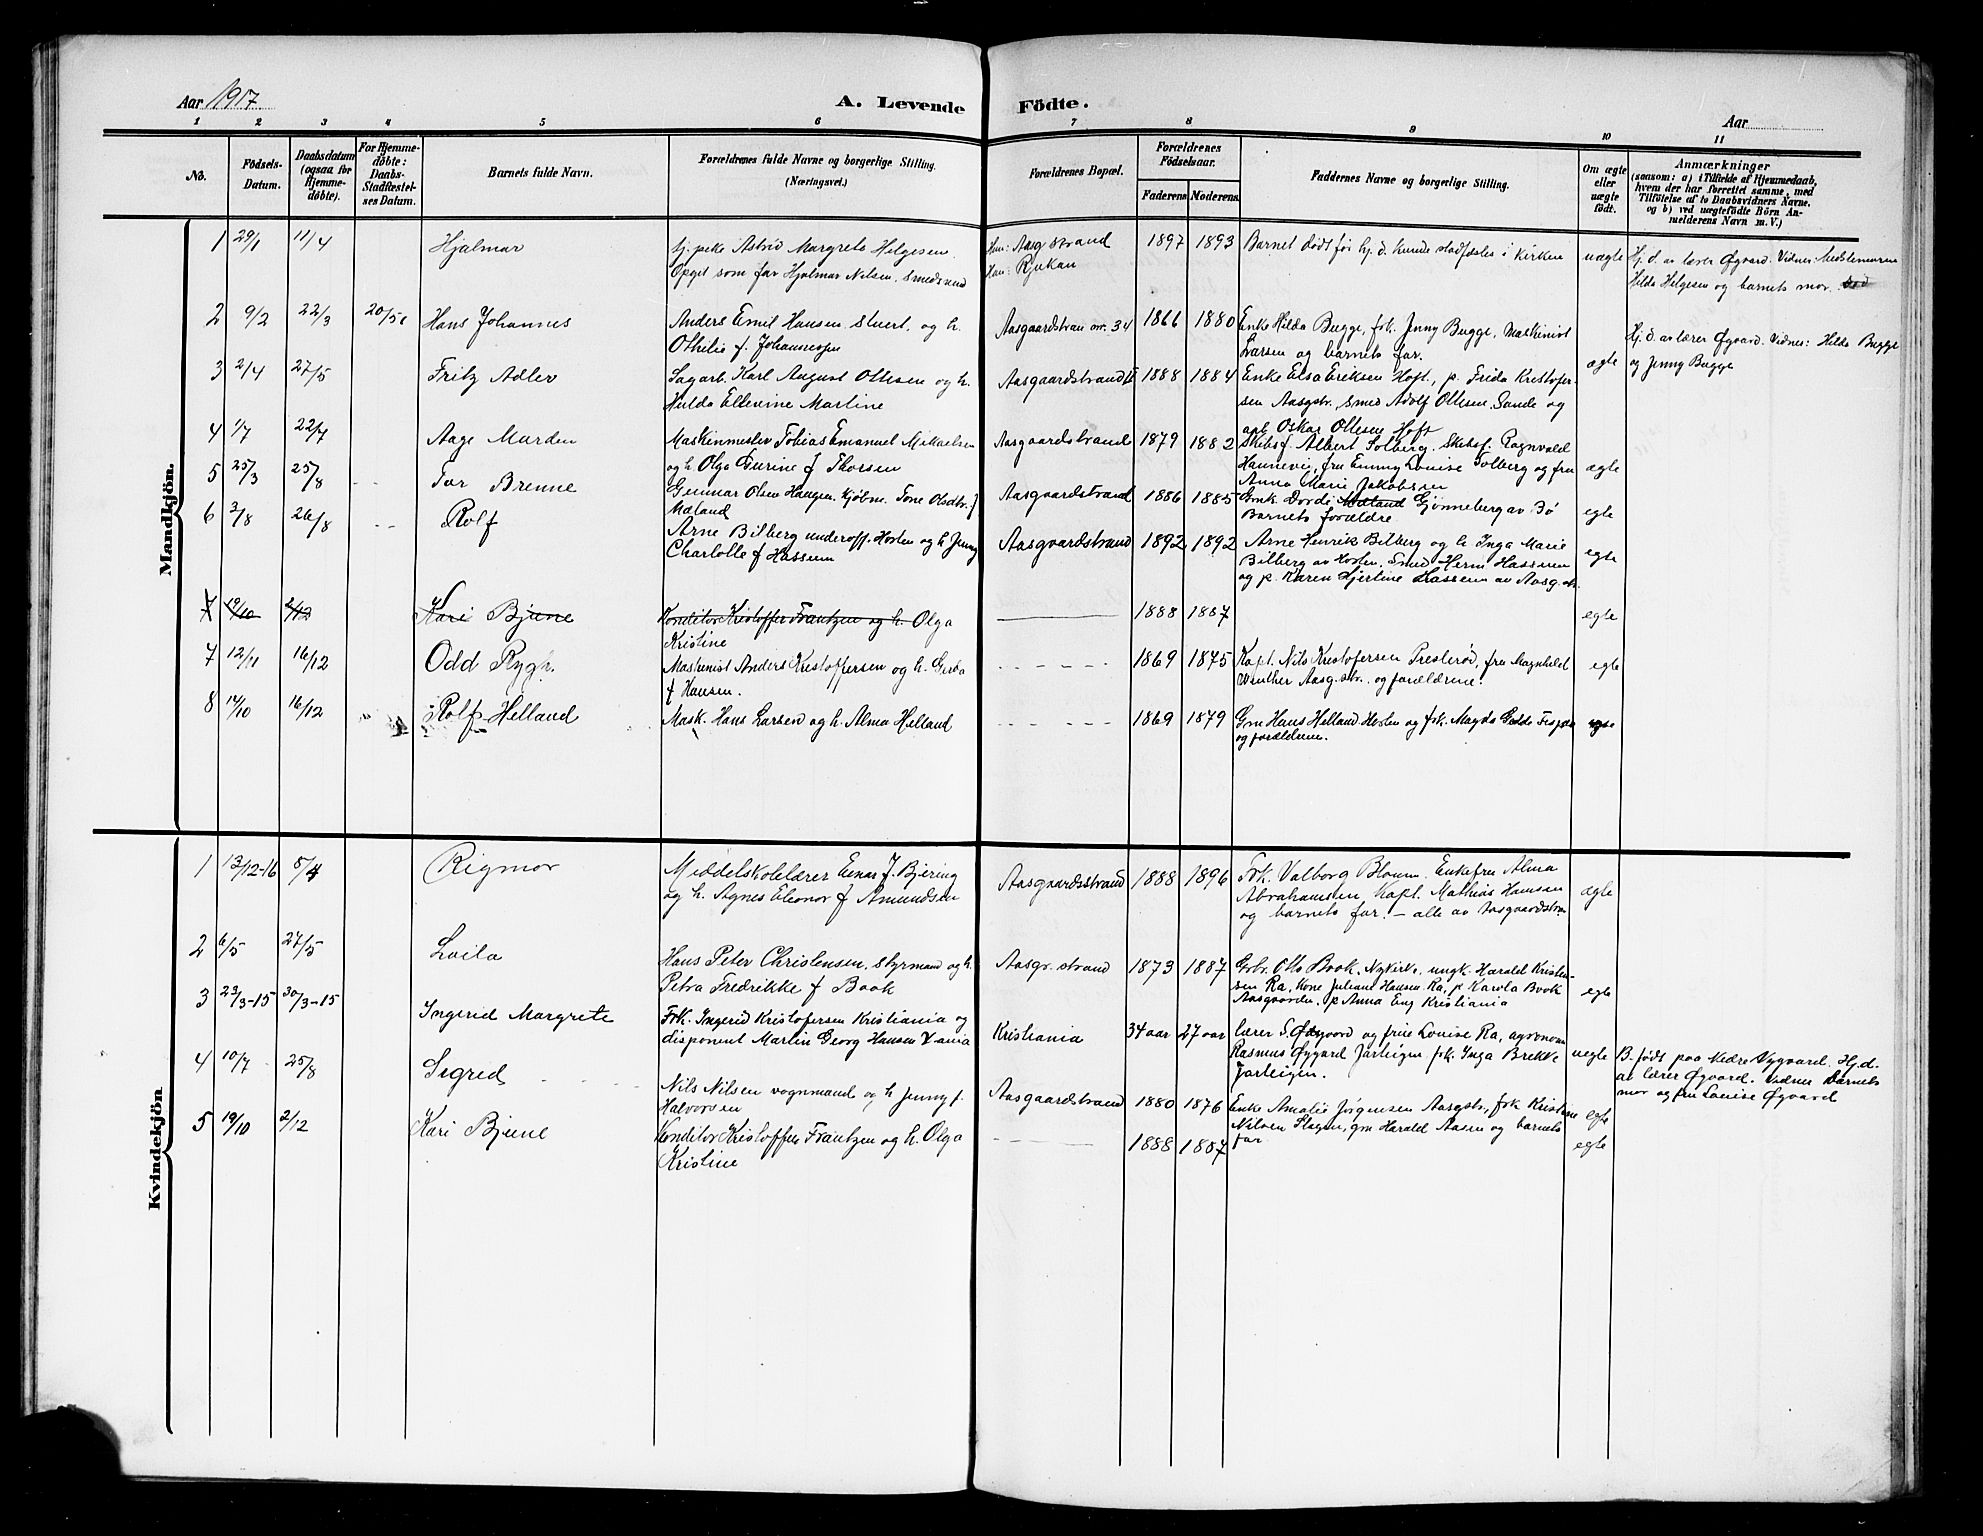 Aar 1917
A. Levende Födte.
Aar
1 2 3 4 5 6 7 8 9 10 11
No.
Födsels-Datum.
Daabsdatum (ogsaa for Hjemme-döbte).
For Hjemme-döbte: Daabs-Stadfæstel-ses Datum.
Barnets fulde Navn.
Forældrenes fulde Navne og borgerlige Stilling.
(Næringsvei.)
Forældrenes Bopæl.
Forældrenes Födselsaar.
Faderens Moderens
Faddernes Navne og borgerlige Stilling.
Om ægte eller uægte födt.
Anmærkninger
(saasom: a) i Tilfælde af Hjemmedaab,
hvem der har forrettet samme, med
Tilföielse af to Daabsvidners Navne.
og b) ved uægtefödte Börn An-
melderens Navn m. V.)
Mandkjön.
1 29/1 11/4 Hjalmar
pike Astrid Margrete Helgesen.
Opget som far Hjalmar Nilsen, smedsvend
Hun: Aasg strand
Han: Rjukan
1897 1893
Barnet dödt för hj. d. kunde stadfæstes i kirken
uægte
Hj. d. av lærer Øgvard. Vidner:
Hilda Helgesen og barnets mor.
2 9/2 22/3 20/5 Hans Johannes
Anders Emil Hansen stuert, og h.
Othilie f. Johannesen
Aasgaardstran 34
1866 1880
Enke Hilda Bugge, frk. Jenny Bugge, Maskinist
Larsen og barnets far.
Hj. d. av lærer Øgvard. Vidnes: Hilda Bugge
og Jenny Bugge
3 2/4 27/5 Fritz Adler
Sagarb. Karl August Ottesen og h.
Hulda Ellevine Martine
Aasgaardstrand
1888 1884
Enke Elsa Eriksen Hoft., p. Frida Kristofer-
sen Aasgstr., smed Adolf Ottesen Sande og
Oskar Ottesen Hoft
ægte
4 1/7 22/7 Aage Marden
Maskinmester Tobias Emanuel Mikaelsen
og h Olga Gurine f Thorsen
Aasgaardstrand
1879 1882
Skibsf. Albert Solberg, Skibsf. Ragnvald
Hannevig, fru Emmy Louise Solberg og fru
Anna Marie Jakobsen
ægte
5 25/3 25/8 Tor Brenne
Gunnar Olsen Haugen. Kjöbm. Tone Olsdtr. f
Mæland
Aasgaardstrand
1886 1885
Gmk. Dordi Mæland Gjönneberg av Bö
Barnets forældre
egte
6 3/8 26/8 Rolf
Arne Bilberg underoff. Horten og h Jenny
Charlotte f Hassum
Aasgaardstrand
1892 1892
Arne Henrik Bilberg og h Inga Marie
Bilberg av Horten, Smed Herm Hassum
og p. Karen Hjertine Lassen av Aasg.str.
egte
7 19/10 2/12 Kari Bjune
Konditor Kristoffer Frantzen og h. Olga
Kristine
1888 1887
egte
7 12/11 16/12 Odd Rygh.
Maskinist Anders Kristoffersen og h. Gerda
f Hansen.
1869 1875
Kapt. Nils Kristofersen Presteröd, fru Magnhild
Winther Aasg.str. og forældrene.
egte
8 14/10 16/12 Rolf Helland
Mask. Hans Larsen og h. Alma Helland
1869 1879
Gm Hans Helland Horten og frk. Magda
og forældrene.
Kvindekjön
1 13/12-16 5/4 Rigmor
Middelskolelærer Einar J. Bjering
og h. Agnes Eleonor f Amundsen
Aasgaardsstrand
1888 1896
Frk. Valborg Blomm. Enkefru Alma
Abrahamsen, Kapt. Mathias Hansen
og barnets far. – alle av Aasgaardstran
ægte
2 6/5 27/5 Laila
Hans Peter Christensen, styrmand og h.
Petra Fredrikke f Book
Aasgr. strand
1873 1887
Grbr. Otto Book, Nykirke, ungk. Harald Kristen-
sen Ra, Kone Juliane Hansen Ra, p Karola Book
Aasgaarden, p Anna Eng Kristiania
egte
3 23/3-15 30/3-15 Ingerid Margrete
Frk. Ingerid Kristofersen Kristiania og
disponent Martin Georg Hansen
Kristiania
34 aar 27 aar
lærer S. Øygvard og frue Louise Ra, agronom
Rasmus Øygard Jarteigen frk. Inga Brekke
Jarteigen.
uegte
B. födt paa Nedre Vygvard. Hj.d.
av lærer Øgvard. Vidner Barnets
mor og fru Louise Øgvard
4 10/7 25/8 Sigrid
Nils Nilsen vognmand og h Jenny f.
Halvorsen
Aasgaardstrand
1880 1876
Enke Amalie Jørgensen Aasgstr, frk Kristine
Nilsen Slagen, gm Harald Aasen og barnets
far
egte
5 19/10 2/12 Kari Bjune
Konditor Kristoffer Frantzen og h. Olga
Kristine
1888 1887
egte